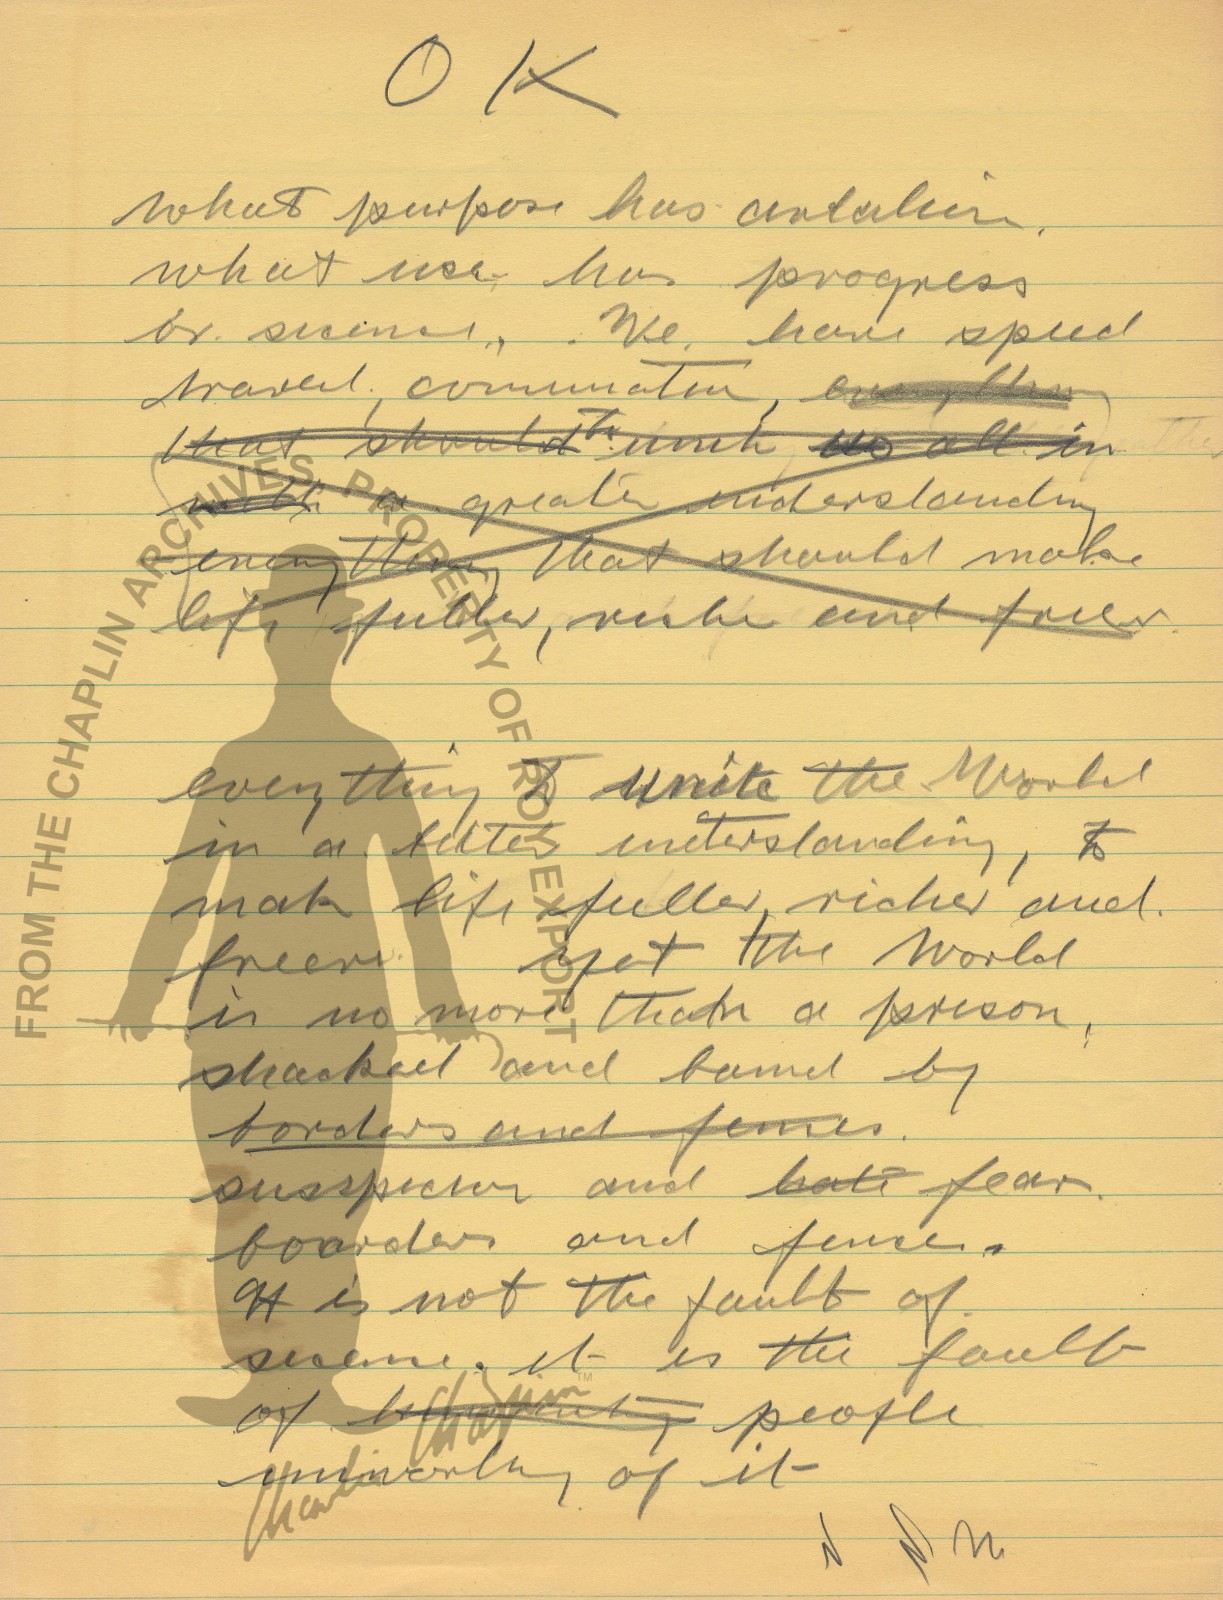 OK
what purpose has
what use has progress
or science, . We have speed
travel, communation, everything
that should to unite us all in
with a greater understanding
everything that should make
life fuller, riche and freer.
everything to unite the World
in a better understanding, to
make life fuller, richer and.
freer. yet the World
is no more than a prison,
shackad and bound by
borders and fences.
susspicion and hate fear.
boarders and fences.
It is not the fault of
science. it is the fault
of humanity people
unworthy of it
FROM THE CHAPLIN ARCHIVES, PROPERTY OF ROY EXPORT
Charlie Chaplin™